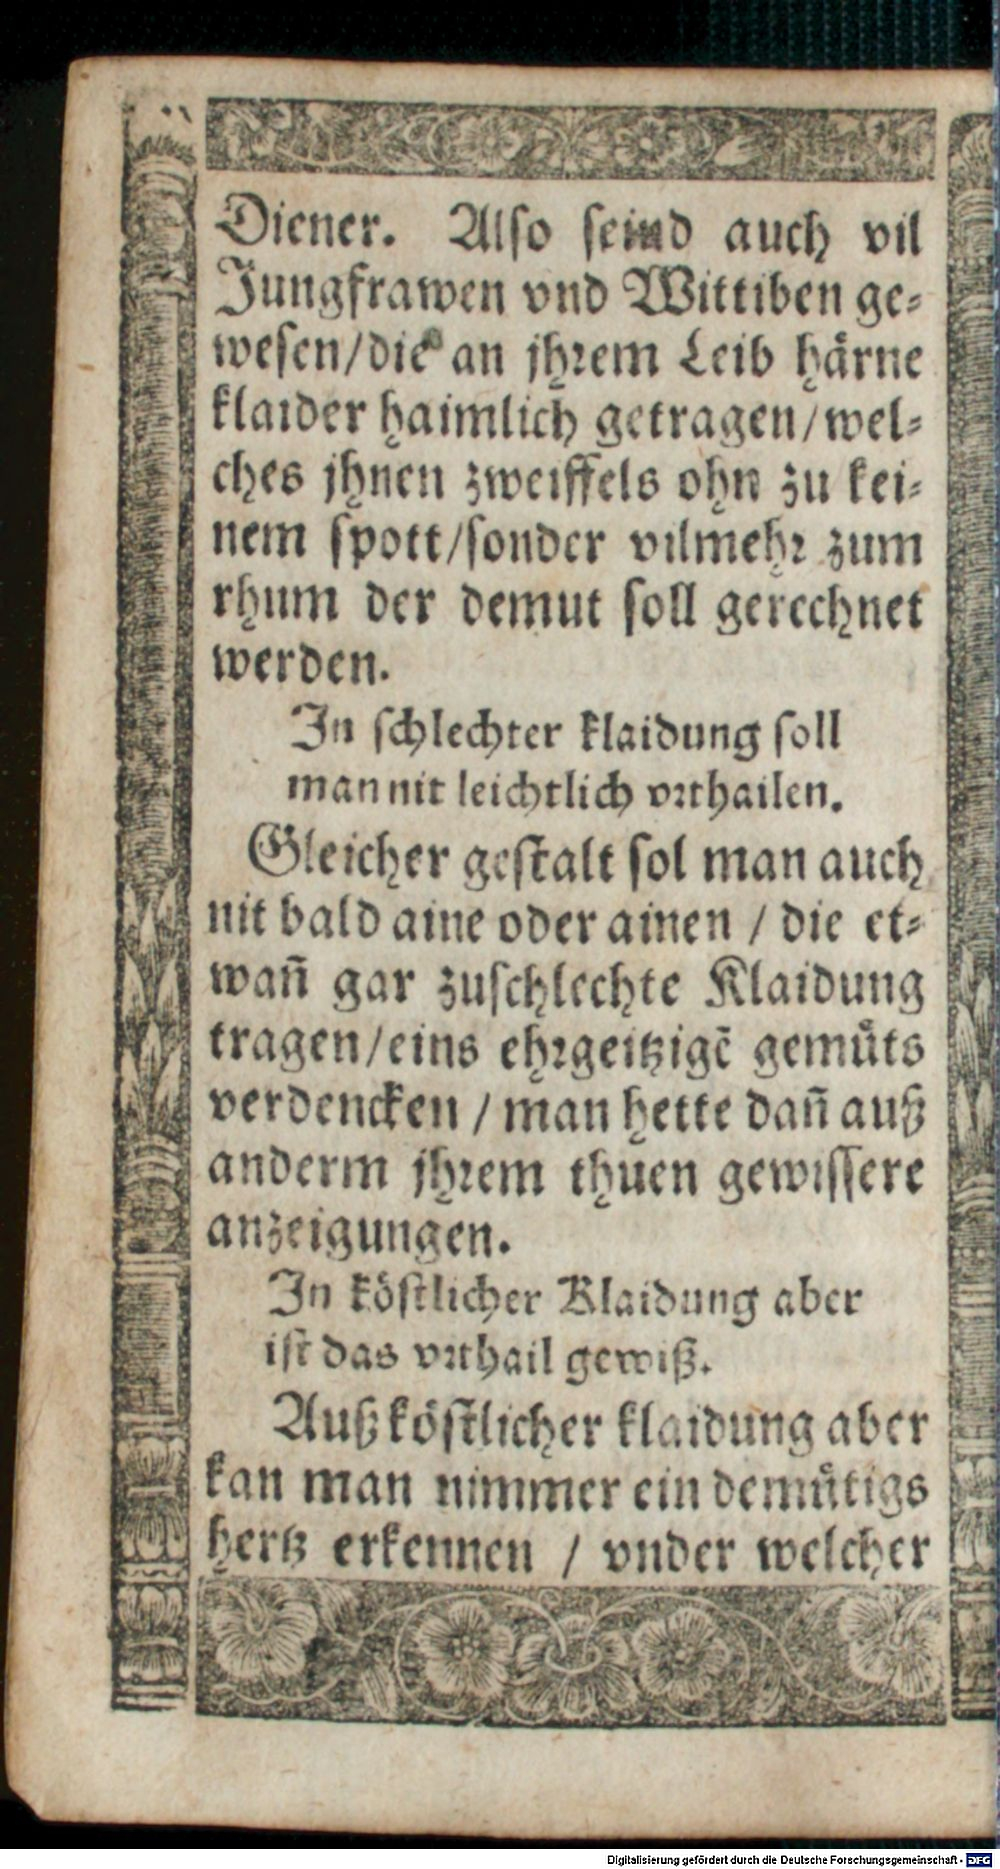 Diener. Also seind auch vil
Jungfrawen vnd Wittiben ge⸗
wesen/die an jhrem Leib härne
klaider haimlich getragen/wel⸗
ches jhnen zweiffels ohn zu kei⸗
nem spott/sonder vilmehr zum
rhum der demut soll gerechnet
werden.
In schlechter klaidung soll
man nit leichtlich vrthailen.
Gleicher gestalt sol man auch
nit bald aine oder ainen / die et⸗
wañ gar zuschlechte Klaidung
tragen/eins ehrgeitzigẽ gemüts
verdencken / man hette dañ auß
anderm jhrem thuen gewissere
anzeigungen.
In köstlicher Klaidung aber
ist das vrthail gewiß.
Auß köstlicher klaidung aber
kan man nimmer ein demütigs
hertz erkennen / vnder welcher
Digitalisierung gefördert durch die Deutsche Forschungsgemeinschaft - DFG